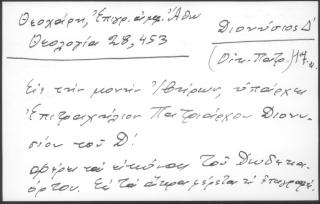 Θεοχάρη, Ἐπιγρ. ἀμφ. Ἀθω
Θεολογία 28, 453
Διονύσιος Δ´
(Οἰκ. Πατρ.) 17 αι.
Εἰς τὴν μονὴν Ἰβήρων, ὑπάρχει
Ἐπιτραχήλιον Πατριάρχου Διονυ-
σίου τοῦ Δ!
φέρει τὰς εἰκόνας τοῦ Δωδεκα-
όρτου. Εἰς τὰ ἄκρα φέρεται ἡ ἐπιγραφή